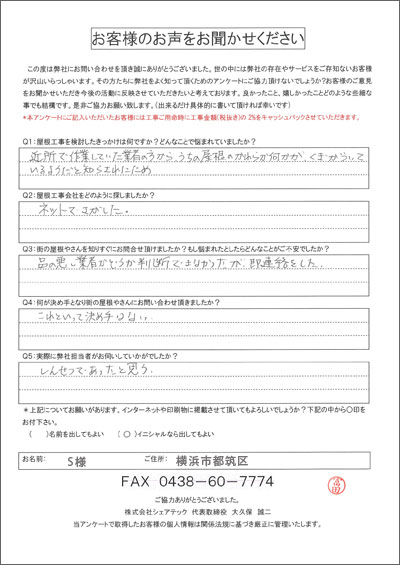 お客様のお声をお聞かせください
この度は弊社にお問い合わせを頂き誠にありがとうございました。世の中には弊社の存在やサービスをご存知ないお客様
が沢山いらっしゃいます。その方たちに弊社をよく知って頂くためのアンケートにご協力頂けないでしょうか?お客様のご意見
をお聞かせいただき今後の活動に反映させていただきたいと考えております。良かったこと、嬉しかったことどのような些細な
事でも結構です。是非ご協力お願い致します。(出来るだけ具体的に書いて頂ければ幸いです)
*本アンケートにご記入いただいたお客様には工事ご用命時に工事金額(税抜き)の 2%をキャッシュバックさせていただきます。
Q1:屋根工事を検討したきっかけは何ですか? どんなことで悩まれていましたか?
近所で作業していた業者の方から、うちの屋根のかわらが何かが、くずれかかって
いるようだと知らされたため
Q2:屋根工事会社をどのように探しましたか?
ネットでさがした。
Q3:街の屋根やさんを知りすぐにお問合せ頂けましたか?もし悩まれたとしたらどんなことがご不安でしたか?
品の悪い業者かどうか判断できなかったが、即連絡をした。
Q4:何が決め手となり街の屋根やさんにお問い合わせ頂きましたか?
これといって決め手はない。
Q5:実際に弊社担当者がお伺いしていかがでしたか?
しんせつであったと思う。
*上記についてお願いがあります。インターネットや印刷物に掲載させて頂いてもよろしいでしょうか?下記の中から〇印を
お付下さい。
( )名前を出してもよい (〇)イニシャルなら出してもよい
お名前: S様 ご住所: 横浜市都筑区
FAX 0438-60-7774
ご協力ありがとうございました。
株式会社シェアテック 代表取締役 大久保 誠二
当アンケートで取得したお客様の個人情報は関係法規に基づき厳正に管理いたします。